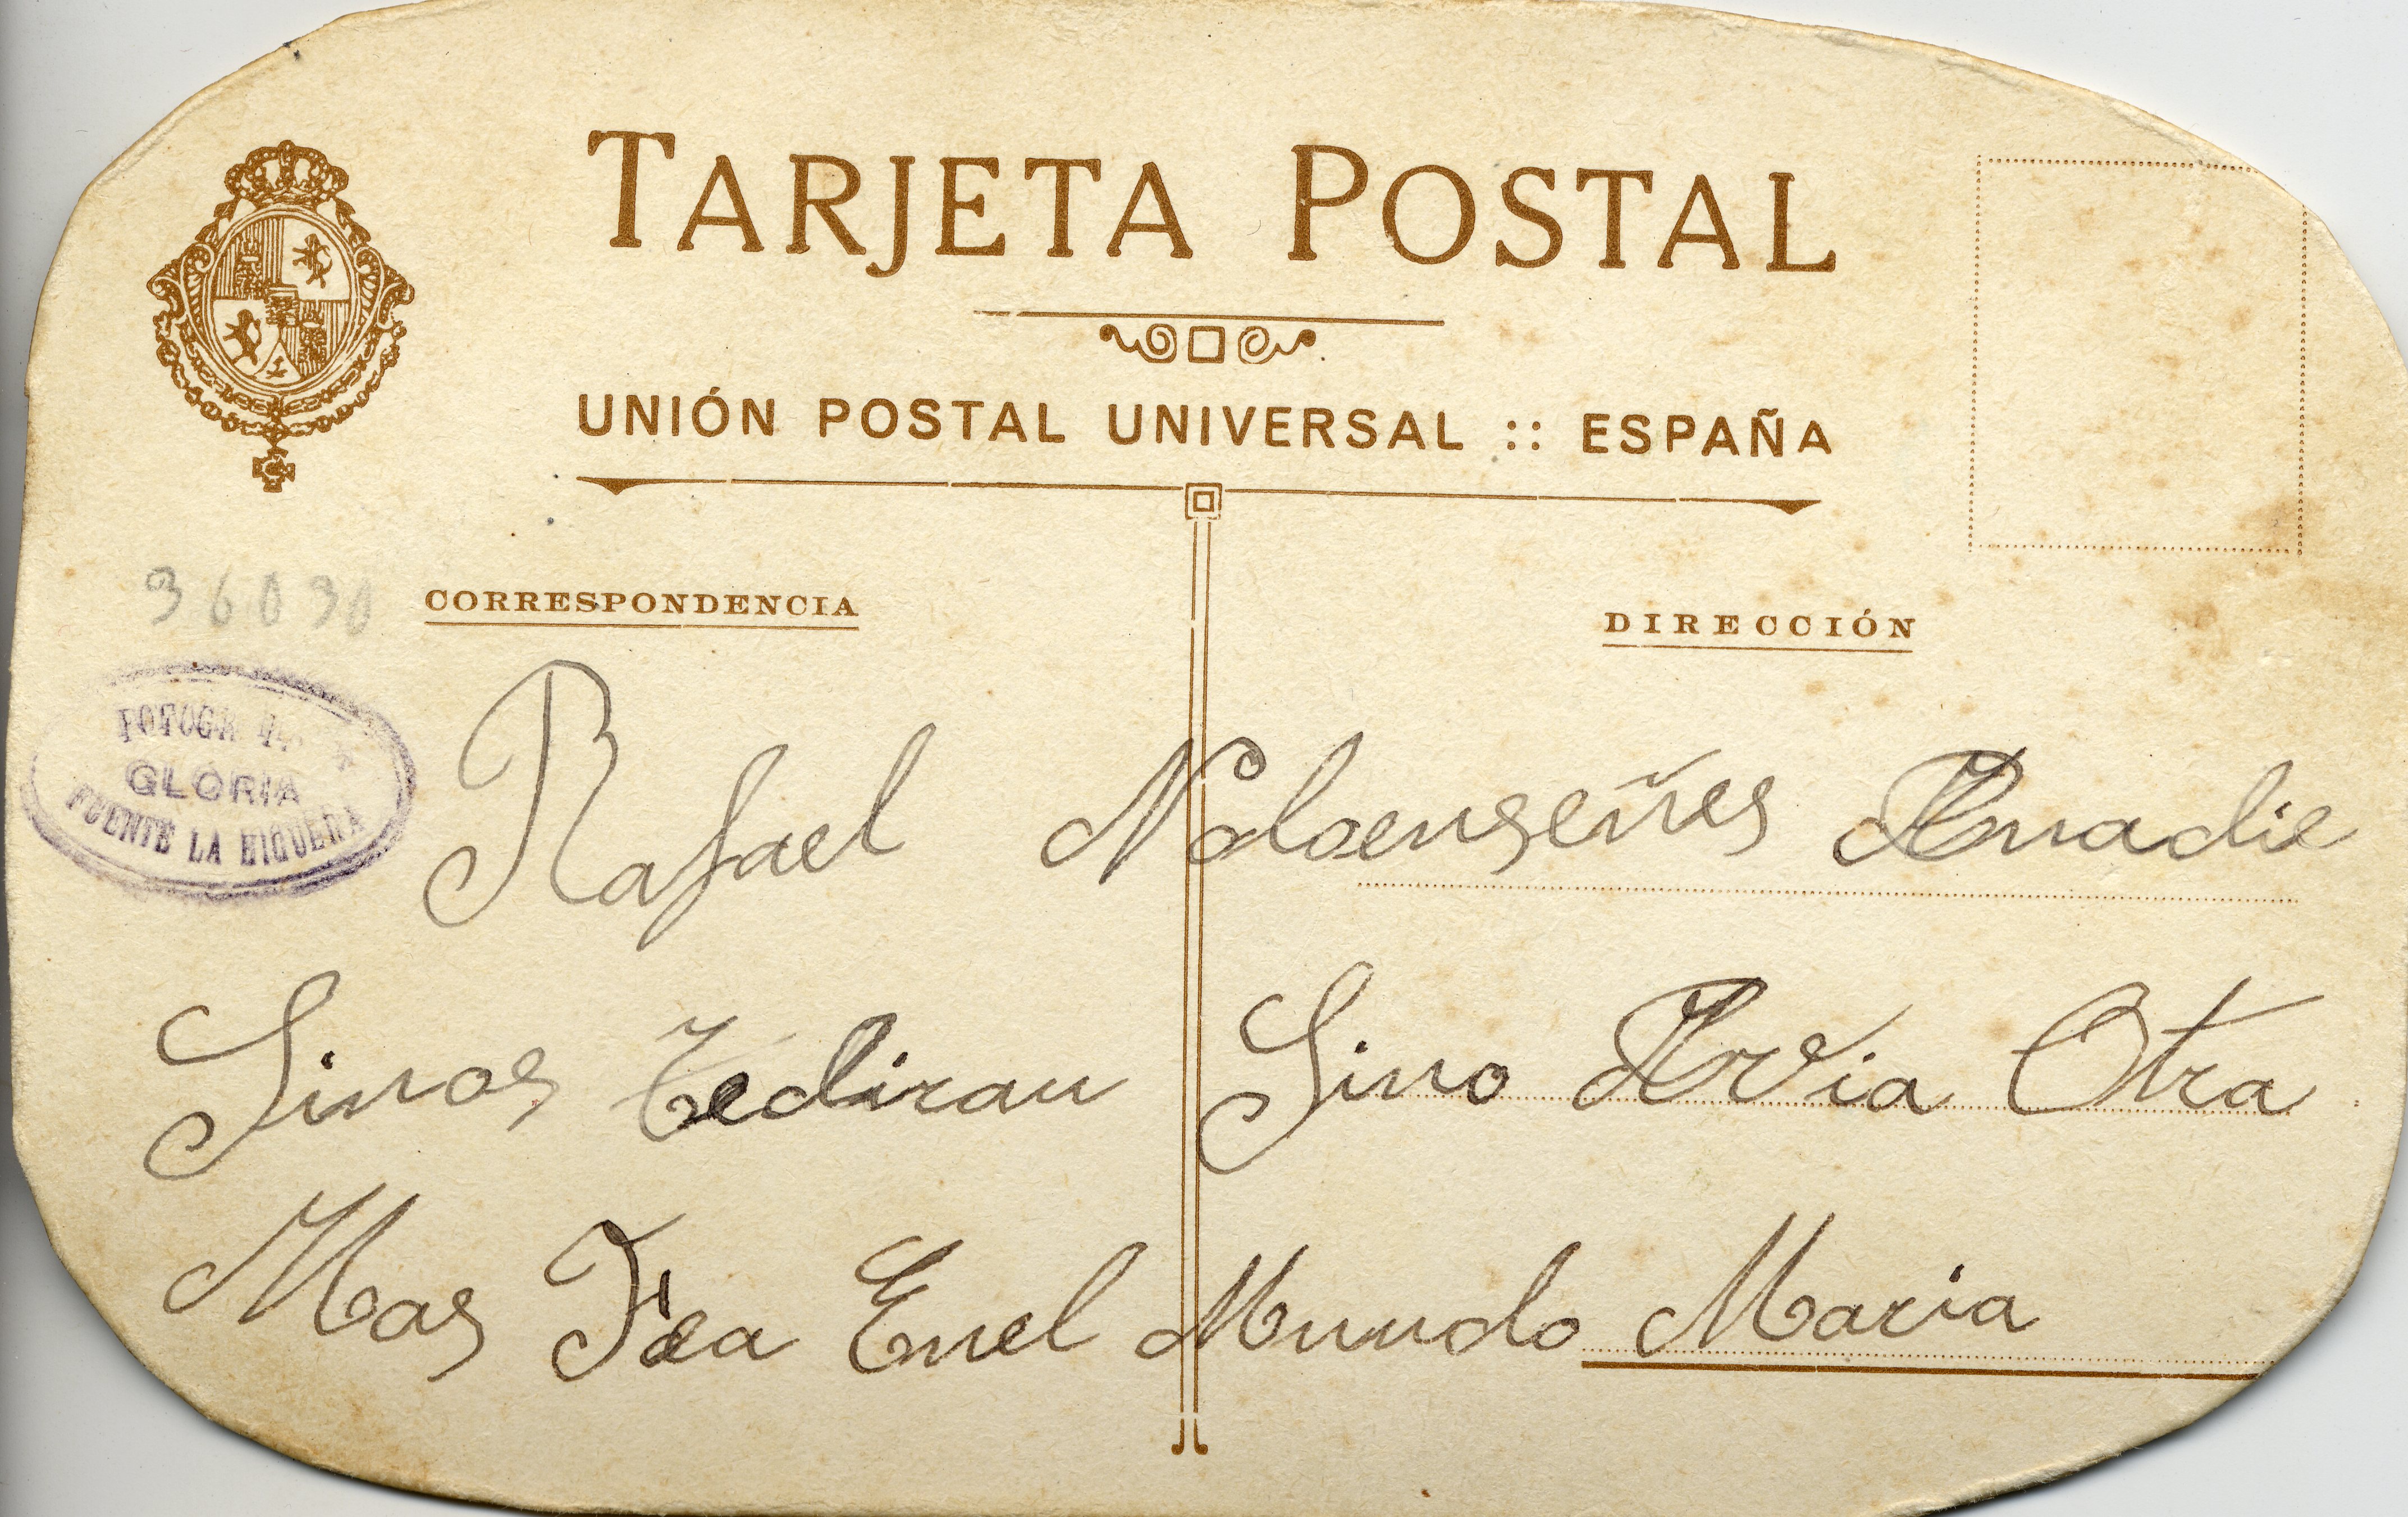 TARJETA POSTAL
UNIÓN POSTAL UNIVERSAL :: ESPAÑA
36030
CORRESPONDENCIA
DIRECCIÓN
GLORIA
FUENTE LA HIGUERA
Rafael Noloenseñes Anadie
Sinos Tediran Sino Avia Otra
Mas Fea Enel Mundo Maria